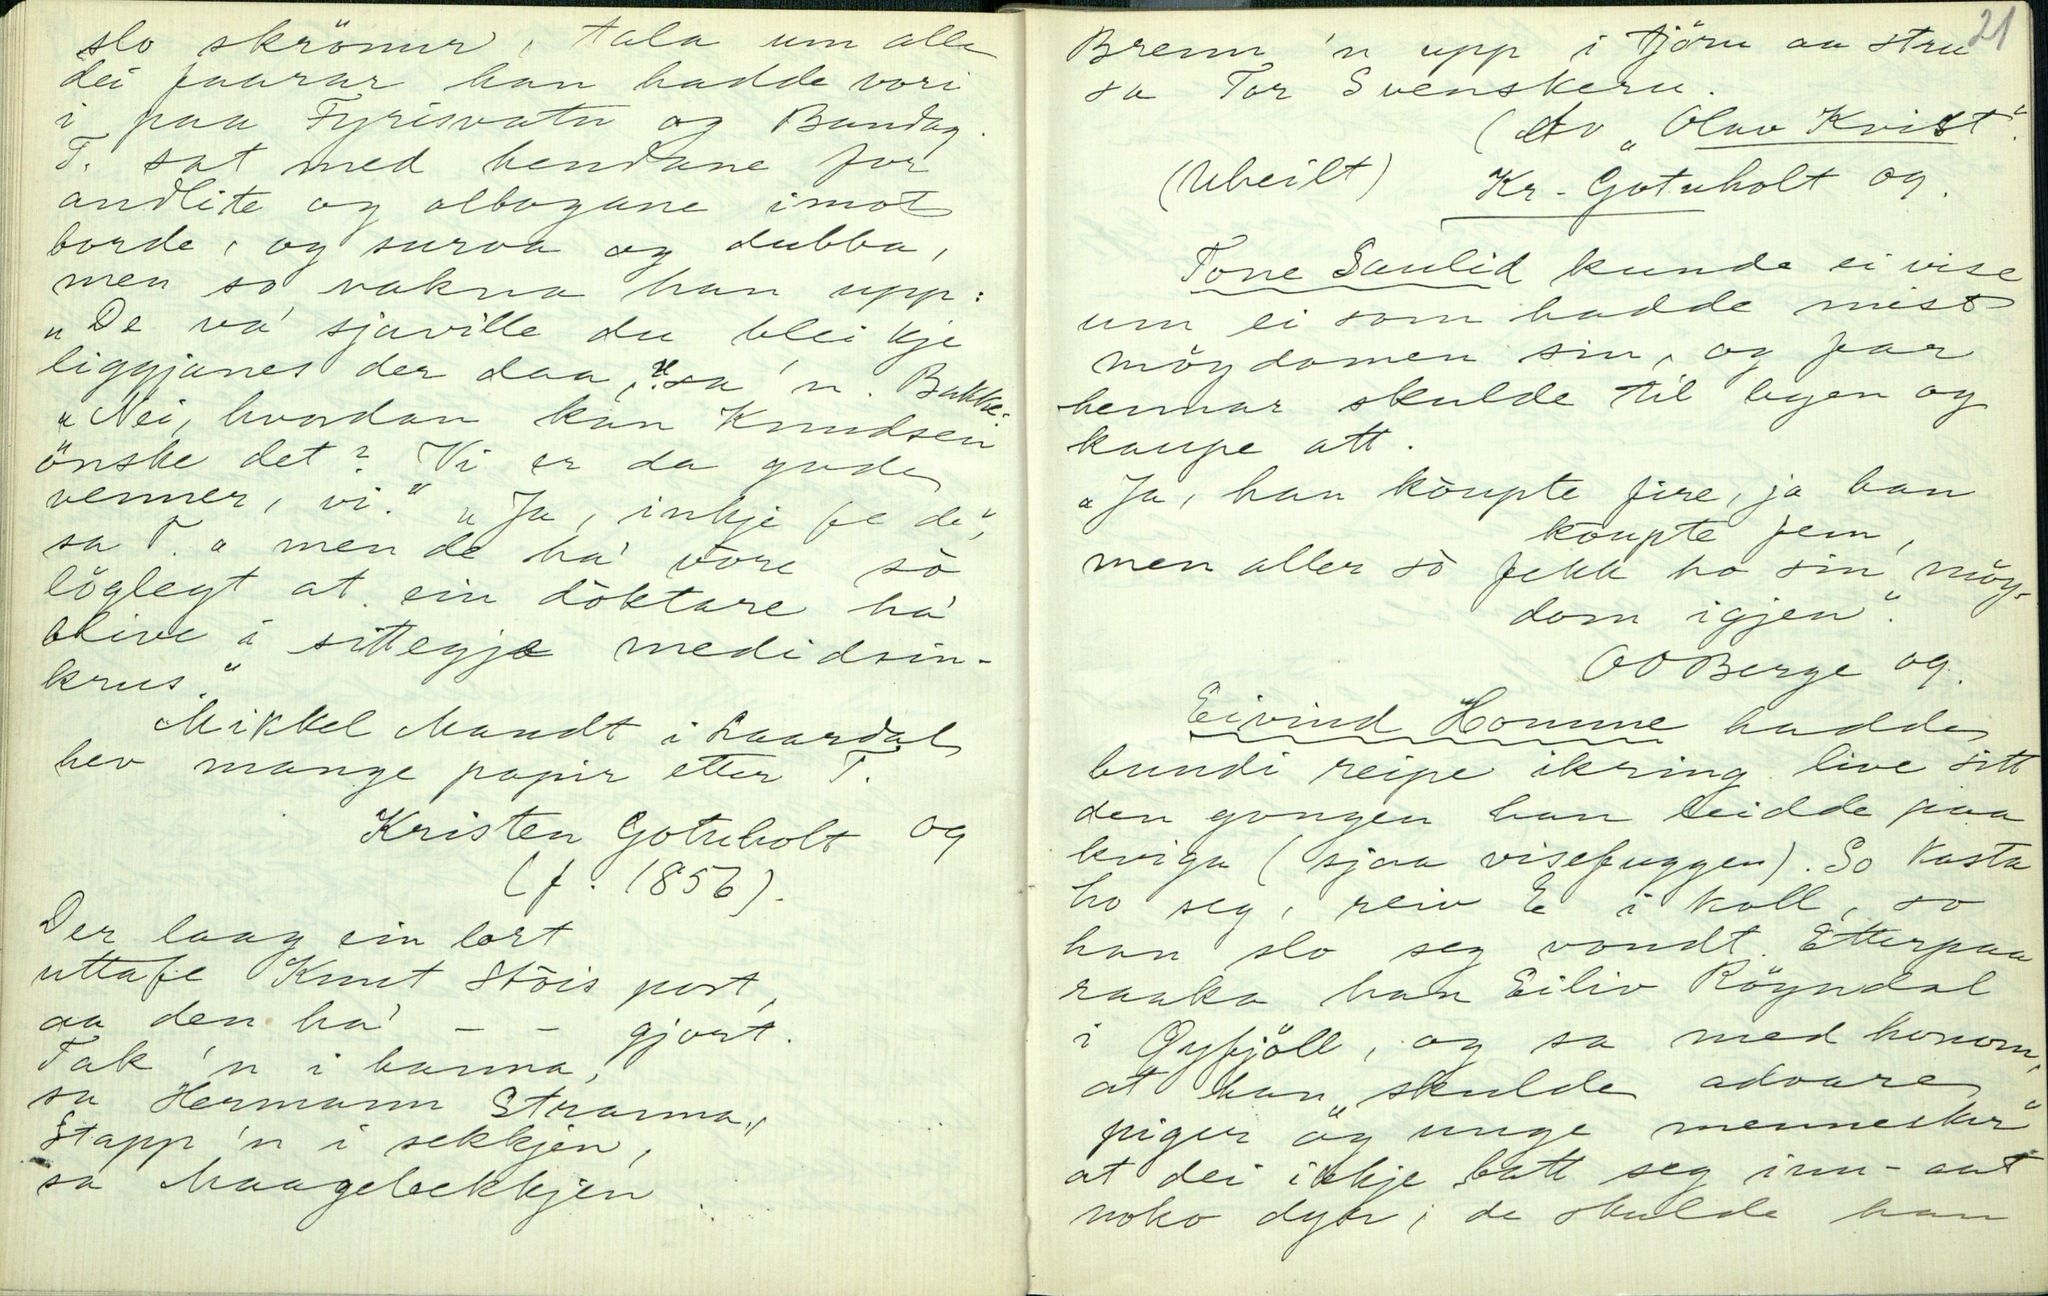 slo skrönur, tala um alle
dei faarar han hadde vori
i paa Fyrisvatn og Bandag.
T. sat med hendane for
andlite og olbogane imot
borde, og surva og dubba,
men so vakna han upp:
"De va' sjaville du blei kje
liggjanes der daa," sa 'n. Bakke:
"Nei, hvordan kan Knudsen
önske det? Vi er da gode
venner, vi." "Ja, inkje fe de",
sa T. "men de ha' vore sò
löglegt at ein döktare ha'
blive i sittegje medidsin-
krus."
Mikkel Mandt i Laardal
hev mange papir etter T.
Kristen Gotuholt og
(f. 1856).
Der laag ein lort
uttafe Knut Stöis port,
aa den ha' – – gjort.
Tak 'n i hanna,
sa Hermann Stranna,
Stapp 'n i sekkjen,
sa Maagebekkjen.
21
Brenn 'n upp i tjöru aa stru
sa Tor Svenskeru.
(Av "Olav Kvist".
(Ubeilt) Kr. Gotuholt og.
Tone Saulid kunde ei vise
um ei som hadde mist
möydomen sin, og far
hennar skulde til byen og
kaupe att.
"Ja, han koupte fire, ja han
koupte fem,
men aller sò fekk ho sin möy-
dom igjen".
OO Berge og.
Eivind Homme hadde
bundi reipe ikring live sitt
den gongen han leidde paa
kviga (sjaa visefuggen). So kasta
ho seg, reiv E i koll, so
han slo seg vondt. Etterpaa
raaka han Eiliv Röyndal
i Öyfjöll, og sa med honom,
at han "skulde advare
piger og unge mennesker"
at dei inkje batt seg inn-aat
noko dyr; de skulde han